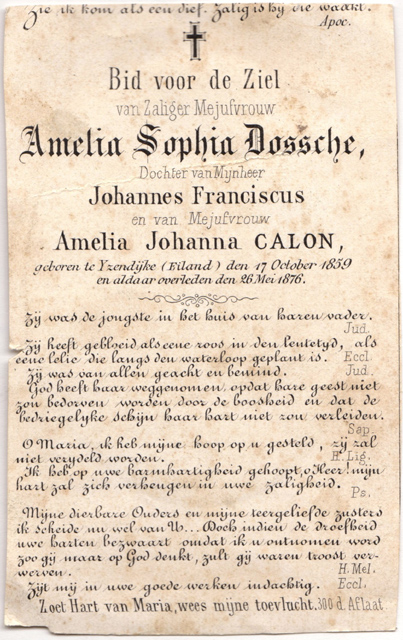 Zie ik kom als een dief. Zalig is hij die waakt.
Apoc.
Bid voor de Ziel
van Zaliger Mejufvrouw
Amelia Sophia Dossche,
Dochter van Mynheer
Johannes Franciscus
en van Mejufvrouw
Amelia Johanna CALON,
geboren te Yzendijke (Eiland) den 17 October 1859
en aldaar overleden den 26 Mei 1876.
Zij was de jongste in het huis van haren vader.
Jud.
Zij heeft gebloeid als eene roos in den lentetyd, als
eene lelie die langs den waterloop geplant is. Eccl.
Zij was van allen geacht en bemind. Jud.
God heeft haar weggenomen, opdat hare geest niet
zou bedorven worden door de boosheid en dat de
bedriegelyke schijn haar hart niet zou verleiden.
Sap.
O Maria, ik heb mijne hoop op u gesteld, zij zal
niet verydeld worden. H. Lig.
Ik heb op uwe barmhartigheid gehoopt, o Heer! mijn
hart zal zich verheugen in uwe zaligheid.
Ps.
Mijne dierbare Ouders en mijne teergeliefde zusters
ik scheide nu wel van U... Doch indien de droefheid
uwe harten bezwaart omdat ik u ontnomen word
zoo gij maar op God denkt, zult gij waren troost ver-
werven. H. Mel.
Zijt mij in uwe goede werken indachtig. Eccl.
Zoet Hart van Maria, wees mijne toevlucht. 300 d. Aflaat